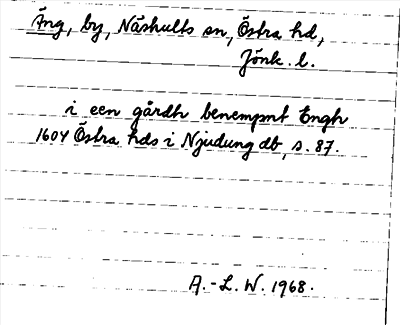 Äng, by, Näshults sn, Östra hd,
Jönk. l.
i een gårdh benempnt Engh
1604 Östra hds i Njudung db, s. 87.
A.-L. W. 1968.